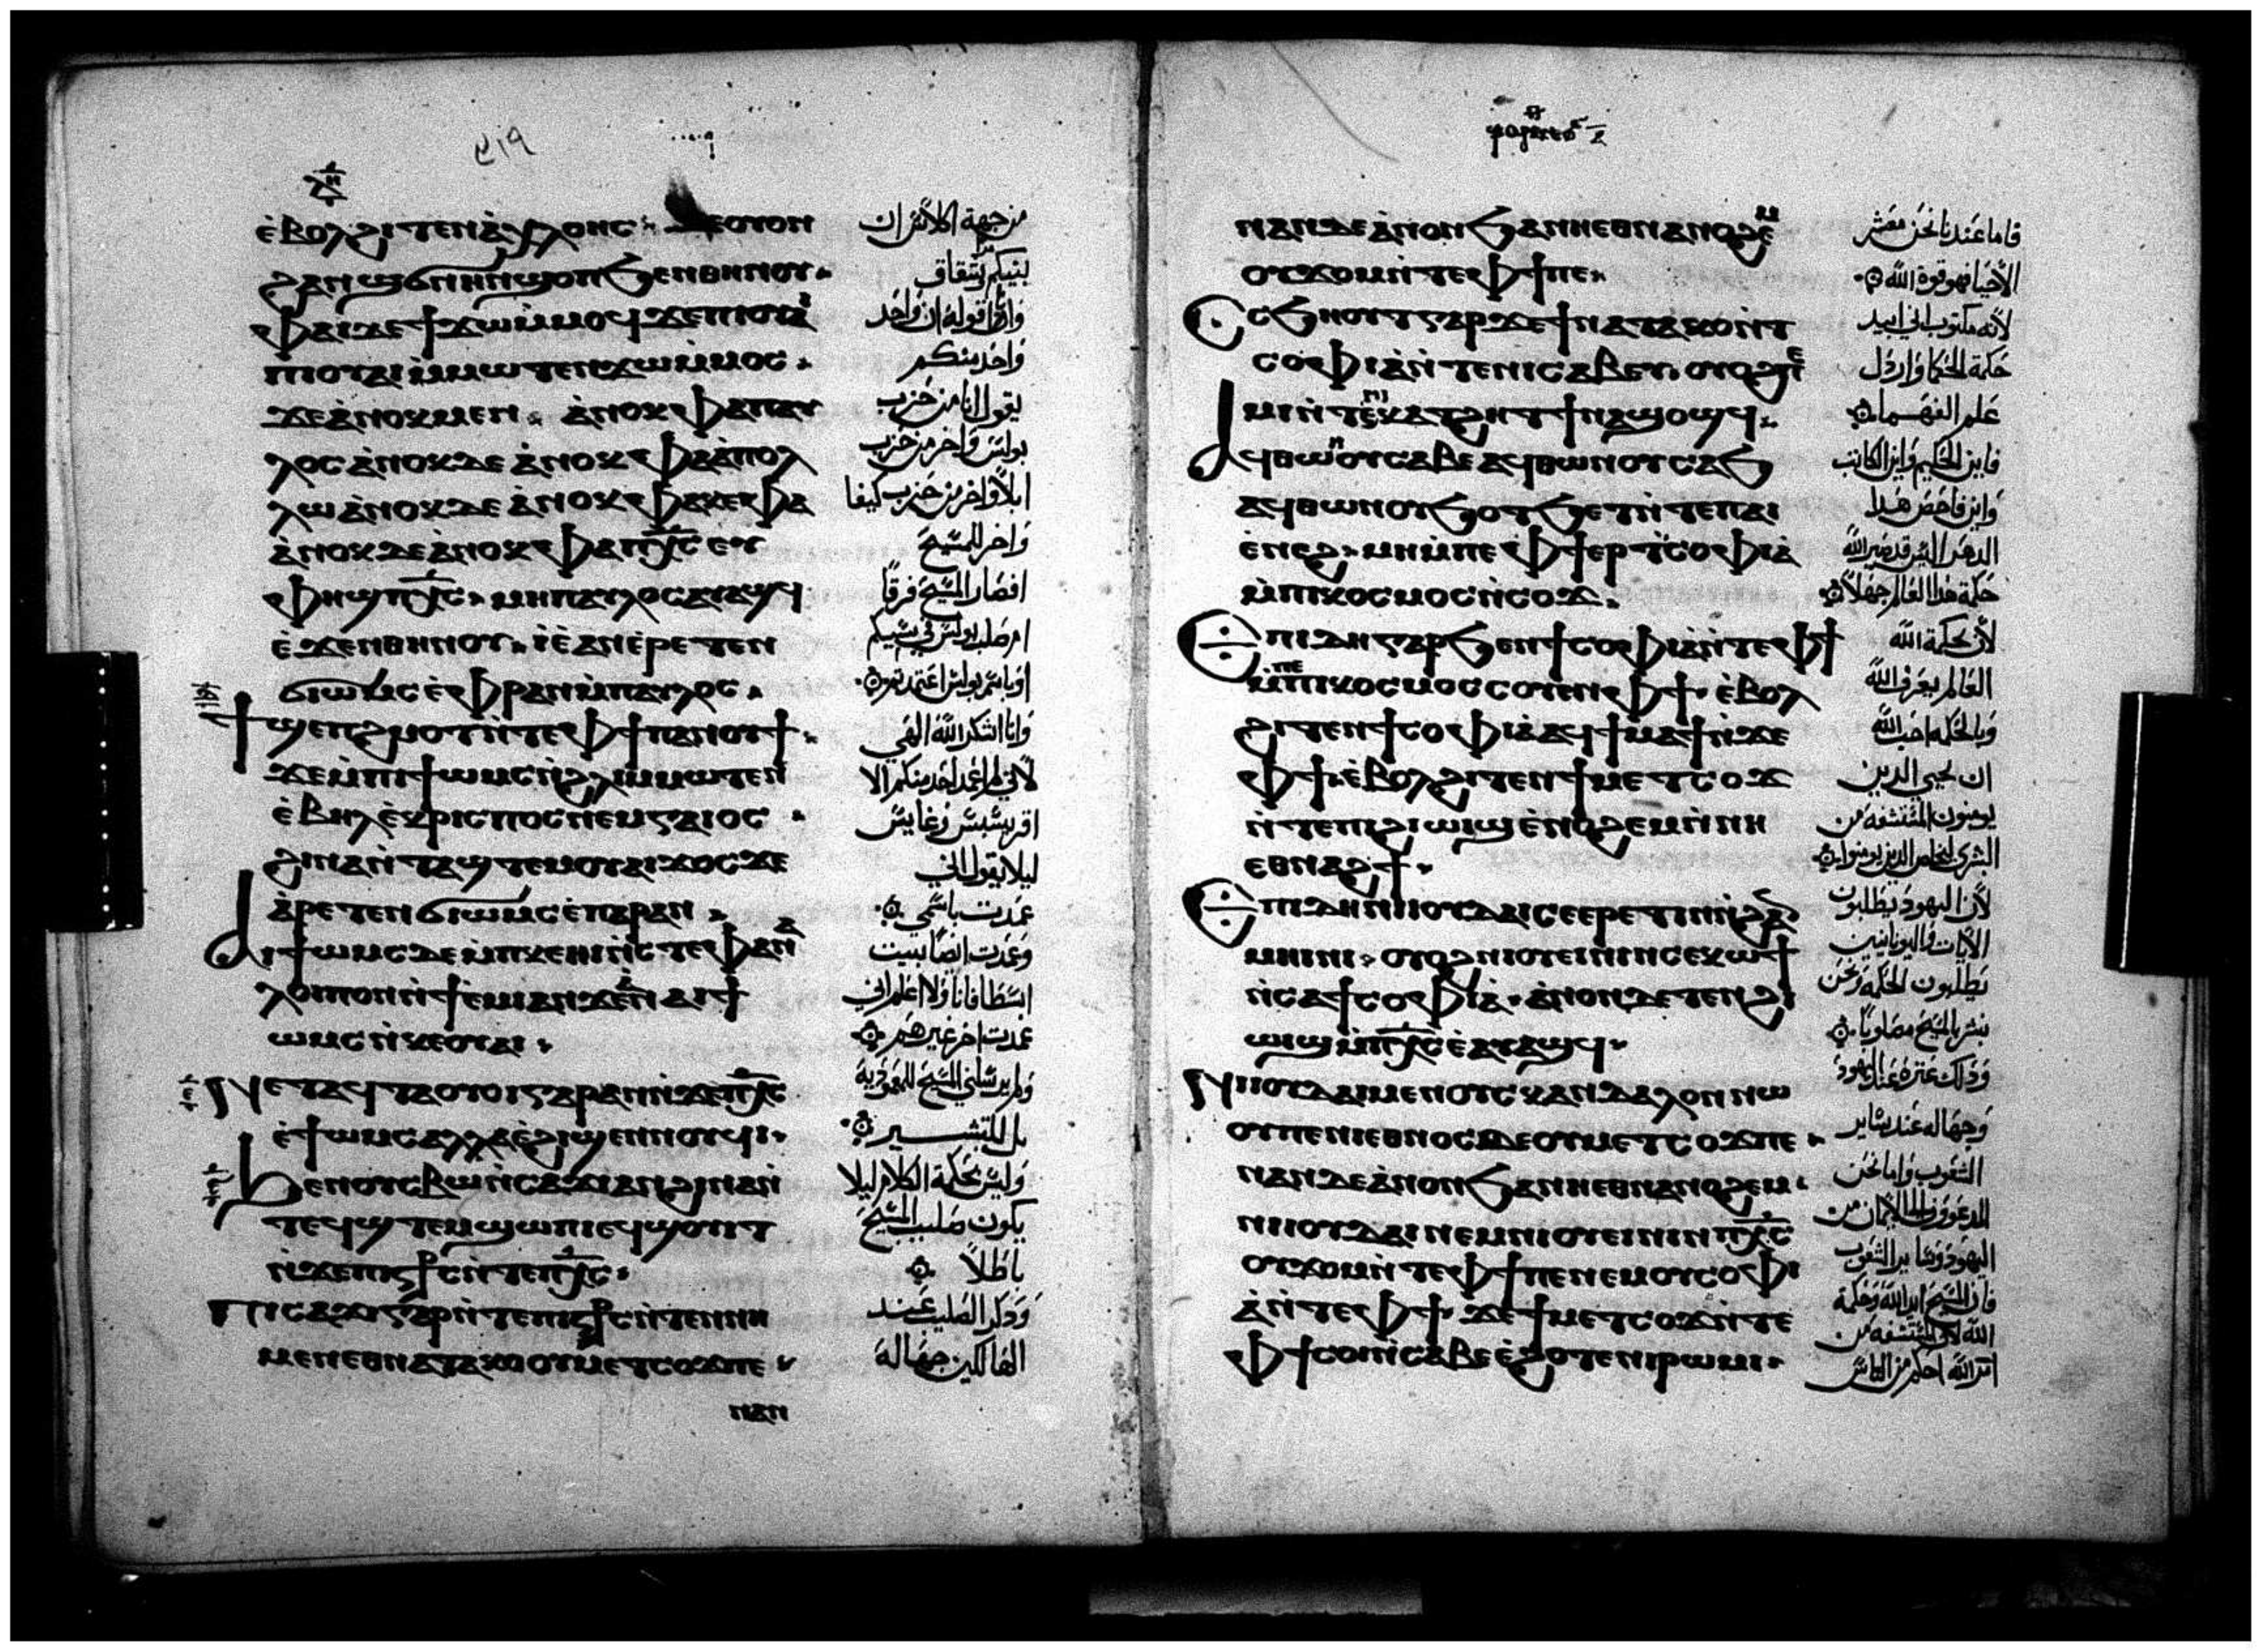 ⲉ̀ⲃⲟⲗϩⲓⲧⲉⲛⲛⲁ̀ⲭⲗⲟⲏⲥ ϫⲉⲟⲩⲟⲛ
ϩⲁⲛϣϭⲛⲏⲛϣⲟⲡϧⲉⲛⲑⲏⲛⲟⲩ
ⲫⲁⲓⲇⲉϯϫⲱⲙ̀ⲙⲟϥϫⲉⲡⲓⲟⲩⲁⲓ
ⲡⲓⲟⲩⲁⲓⲙ̀ⲙⲱⲧⲉⲛϫⲱⲙ̀ⲙⲟⲥ
ϫⲉⲁ̀ⲛⲟⲕⲙⲉⲛ ⲁ̀ⲛⲟⲕⲫⲁⲡⲁⲩ
ⲗⲟⲥⲁ̀ⲛⲟⲕⲇⲉⲁ̀ⲛⲟⲕⲫⲁⲁ̀ⲡⲟⲗ
ⲗⲱⲁ̀ⲛⲟⲕⲇⲉⲁ̀ⲛⲟⲕⲫⲁⲕⲉⲫⲁ
ⲁ̀ⲛⲟⲕⲇⲉⲁ̀ⲛⲟⲕⲫⲁⲡⲭ̅ⲥ̅ ⲉⲩ
ⲫⲏϣⲡⲭ̅ⲥ̅ ⲙⲏⲡⲁⲩⲗⲟⲥⲁⲩⲁϣϥ
ⲉ̀ϫⲉⲛⲑⲏⲛⲟⲩ ⲓⲉ̀ⲁⲛⲉ̀ⲣⲉⲧⲉⲛ
ϭⲓⲱⲙⲥⲉ̀ⲫⲣⲁⲛⲙ̀ⲡⲁⲩⲗⲟⲥ
ϯϣⲉⲡϩⲙⲟⲧⲛ̀ⲧⲉⲫϯⲡⲁⲛⲟⲩϯ
ϫⲉⲙ̀ⲡⲓϯⲱⲙⲥⲛ̀ϩⲗⲓⲙ̀ⲙⲱⲧⲉⲛ
ⲉ̀ⲃⲏⲗⲉ̀ⲕⲣⲓⲥⲡⲟⲥⲛⲉⲙⲅⲁⲓⲟⲥ
ϩⲓⲛⲁⲛ̀ⲧⲁϣⲧⲉⲙⲟⲩⲁⲓϫⲟⲥϫⲉ
ⲁ̀ⲣⲉⲧⲉⲛϭⲓⲱⲙⲥⲉ̀ⲡⲁⲣⲁⲛ
ⲁⲓϯⲱⲙⲥⲇⲉⲙ̀ⲡⲕⲉⲏⲓⲛ̀ⲥⲧⲉⲫⲁⲛⲁ
ⲗⲟⲓⲡⲟⲛⲛ̀ϯⲉ̀ⲙⲓⲁⲛϫⲉⲁⲛⲁⲓϯ
ⲱⲙⲥⲛ̀ⲕⲉⲟⲩⲁⲓ
ⲛⲉⲧⲁϥⲧⲁⲟⲩⲟⲓⲅⲁⲣⲁⲛⲛ̀ϫⲉⲡⲭ̅ⲥ̅
ⲉ̀ϯⲱⲙⲥⲁⲗⲗⲁⲉ̀ϩⲓϣⲉⲛⲛⲟⲩϥⲓ
ϧⲉⲛⲟⲩⲥⲃⲱⲛ̀ⲥⲁϫⲓⲁⲛϩⲓⲛⲁⲛ̀
ⲧⲉϥϣⲧⲉⲙϣⲱⲡⲓⲉϥϣⲟⲩⲓⲧ
ⲛ̀ϫⲉⲡⲓⲥⳁⲥⲛ̀ⲧⲉⲡⲭ̅ⲥ̅
ⲡⲓⲥⲁϫⲓⲅⲁⲣⲛ̀ⲧⲉⲡⲓⲥⳁⲥⲛ̀ⲧⲉⲛⲛⲏ
ⲙⲉⲛⲉⲑⲛⲁⲧⲁⲕⲟⲟⲩⲙⲉⲧⲥⲟϫⲡⲉ
ⲛⲁⲛ
٩١٩
من جهة اكلاس ان
بينكم شقاق
وانا اقوله ان واحد
واحد منكم
يقول انا من حزب
بولس واخر من حزب
ابلو واخر من حزب كيفا
واخر للمسيح
افصار المسيح فرقا
ام صلب بولس في سببكم
او باسم بولس اعتمدتم
وانا اشكر الله الهي
لاني لم اعمد احد منكم الا
اقريسبس وغايس
ليلا يقول اني
عمدت باسمي
وعمدت ايضا بيت
اسطافانا ولا اعلم اني
عمدت اخر غيرهم
ولم يرسلني المسيح للمعمودية
بل للتبشير
وليس بحكمة الكلام ليلا
يكون صليب المسيح
باطلا
وذكر الصليب عند
الهالكين جهالة
ⲛⲁⲛⲇⲉⲁ̀ⲛⲟⲛϧⲁⲛⲏⲉⲑⲛⲁⲛⲟϩⲉⲙ
ⲟⲩϫⲟⲙⲛ̀ⲧⲉⲫϯⲡⲉ
ⲥ̀ϧⲏⲟⲩⲧⲅⲁⲣϫⲉϯⲛⲁⲧⲁⲕⲟⲛ̀ϯ
ⲥⲟⲫⲓⲁⲛ̀ⲧⲉⲛⲓⲥⲁⲃⲉⲩ ⲟⲩⲟϩⲡⲓⲉ
ⲙⲓⲛ̀ⲧⲉⲛⲓⲕⲁⲧϩⲏⲧϯⲛⲁϣⲟϣϥ
ⲁϥⲑⲱⲛⲟⲩⲥⲁⲃⲉⲁϥⲑⲱⲛⲟⲩⲥⲁϧ
ⲁϥⲑⲱⲛⲟⲩϧⲟⲧϧⲉⲧⲛ̀ⲧⲉⲡⲁⲓ
ⲉ̀ⲛⲉϩ ⲙⲏⲙ̀ⲡⲉⲫϯⲉⲣϯⲥⲟⲫⲓⲁ̀
ⲙ̀ⲡⲓⲕⲟⲥⲙⲟⲥⲛ̀ⲥⲟϫ
ⲉⲡⲓⲇⲏⲅⲁⲣϧⲉⲛϯⲥⲟⲫⲓⲁⲛ̀ⲧⲉⲫϯ
ⲙ̀ⲡⲉⲡⲓⲕⲟⲥⲙⲟⲥⲥⲟⲩⲉⲛⲫϯ ⲉ̀ⲃⲟⲗ
ϩⲓⲧⲉⲛϯⲥⲟⲫⲓⲁ̀ⲁϥϯⲙⲁϯⲛ̀ϫⲉ
ⲫϯ ⲉ̀ⲃⲟⲗϩⲓⲧⲉⲛϯⲙⲉⲧⲥⲟϫ
ⲛ̀ⲧⲉⲡⲓϩⲓⲱⲓϣⲉ̀ⲛⲟϩⲉⲙⲛ̀ⲛⲏ
ⲉⲑⲛⲁϩϯ
ⲉⲡⲓⲇⲏⲛⲓⲓⲟⲩⲇⲁⲓⲥⲉⲉⲣⲉⲧⲓⲛⲛ̀ϩⲁⲛ
ⲙⲏⲓⲛⲓ ⲟⲩⲟϩⲛⲓⲟⲩⲉⲓⲛⲓⲛⲥⲉⲕⲱϯ
ⲛ̀ⲥⲁϯⲥⲟⲫⲓⲁ̀ ⲁ̀ⲛⲟⲛⲇⲉⲧⲉⲛϩⲓ
ⲱⲓϣⲙ̀ⲡⲭ̅ⲥ̅ⲉ̀ⲁⲩⲁϣϥ
ⲛⲓⲓⲟⲩⲇⲁⲓⲙⲉⲛⲟⲩⲥⲕⲁⲛⲇⲁⲗⲟⲛⲛⲱ
ⲟⲩⲡⲉⲛⲓⲉⲑⲛⲟⲥⲇⲉⲟⲩⲙⲉⲧⲥⲟϫⲡⲉ
ⲛⲁⲛⲇⲉⲁ̀ⲛⲟⲛϧⲁⲛⲏⲉⲑⲛⲁⲛⲟϩⲉⲙ
ⲛⲓⲓⲟⲩⲇⲁⲓⲛⲉⲙⲛⲓⲟⲩⲉⲓⲛⲓⲛⲡⲭ̅ⲥ̅
ⲟⲩϫⲟⲙⲛ̀ⲧⲉⲫϯⲡⲉⲛⲉⲙⲟⲩⲥⲟⲫⲓ
ⲁ̀ⲛ̀ⲧⲉⲫϯ ϫⲉϯⲙⲉⲧⲥⲟϫⲛ̀ⲧⲉ
ⲫϯⲥⲟⲓⲛ̀ⲥⲁⲃⲉⲉ̀ϩⲟⲧⲉⲛⲓⲣⲱⲙⲓ
فاما عندنا نحن معشر
الاحيا فهو قوة الله
لانه مكتوب اني ابيد
حكمة الحكما وارذل
علم الفهما
فاين الحكيم واين الكاتب
واين فاحص هذا
الدهر اليس قد صير الله
حكمة هذا العالم جهلا
لان بحكمة الله
العالم يعرف الله
وبالحكمه احب الله
ان يحيي الدين
لان اليهود يطلبون
الايات واليونانيين
يطلبون الحكمه ونحن
نبشر بالمسيح مصلوبا
وذلك عثرة عند اليهود
وجهاله عند ساير
الشعوب واما نحن
اليهود وساير الشعوب
الله احكم من الناس